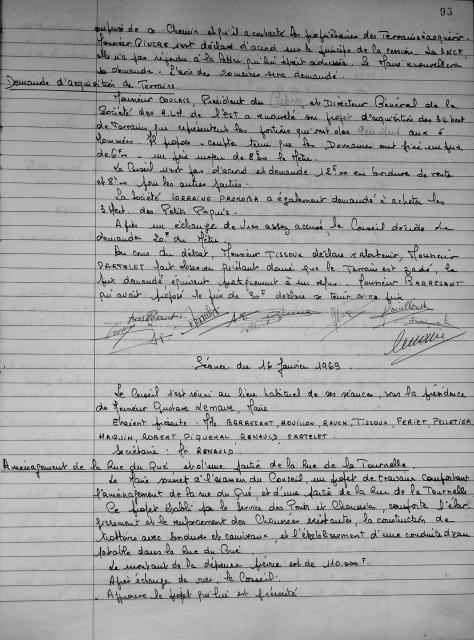 93
de ce Chemin et qu'il a contacté les propriétaires des Terrains à acquérir.
Monsieur PINCRE s'est déclaré d'accord sur le principe de la cession. La SNCF
elle n'a pas répondu à la lettre qui lui était adressée. Le Maire renouvellera
sa demande. L'avis des Domaines sera demandé.
Demande d'acquisition de Terrains.
Monsieur Président du et Directeur Général de la
Société des H.L.M. de l'EST a renouvelé son projet d'acquisition des
de Terrain, que représentent les portions qui ont des à
Il propose compte tenu que les Domaines ont fixé un prix
de un prix moyen de le Mètre.
Le Conseil n'est pas d'accord et demande en bordure de route
et pour les autres parties.
La Société LORRAINE PROMOBA a également demandé à acheter les
3 Hect. des Petits
Après un échange de vues assez accusé le Conseil décide de
demander 20F du Mètre.
Au cours du débat, Monsieur TISSOUX déclare s'abstenir, Monsieur
DARTELET fait observer qu'étant donné que le Terrain est gadé, le
prix demandé équivaut pratiquement à un refus. Monsieur BARRESANT
qui avait proposé le prix de déclare se tenir à ce prix
Séance du 16 Janvier 1969.
Le Conseil s'est réuni au lieu habituel de ses séances, sous la présidence
de Monsieur Gustave Lemaire, Maire
Etaient présents : MM. BARRESANT, HOUILLON, RAUCH, TISSOUX, FERIET, PELLETIER,
HAQUIN, ROBERT PIQUERAL RENAULD DARTELET.
Secrétaire : Mr RENAULD
Aménagement de la Rue du Gué et d'une partie de la Rue de la Tournelle.
Le Maire soumet à l'examen du Conseil, un projet de travaux comportant
l'aménagement de la rue du Gué et d'une partie de la Rue de la Tournelle
Ce projet établi par le service des Ponts et Chaussées, comporte l'élar-
gissement et le renforcement des Chaussées existantes, la construction de
trottoirs avec bordures et caniveaux, et l'établissement d'une conduite d'eau
potable dans la Rue du Gué
Le montant de la dépense prévue est de 110.000F.
Après échange de vues, le Conseil
- Approuve le projet qui lui est présenté